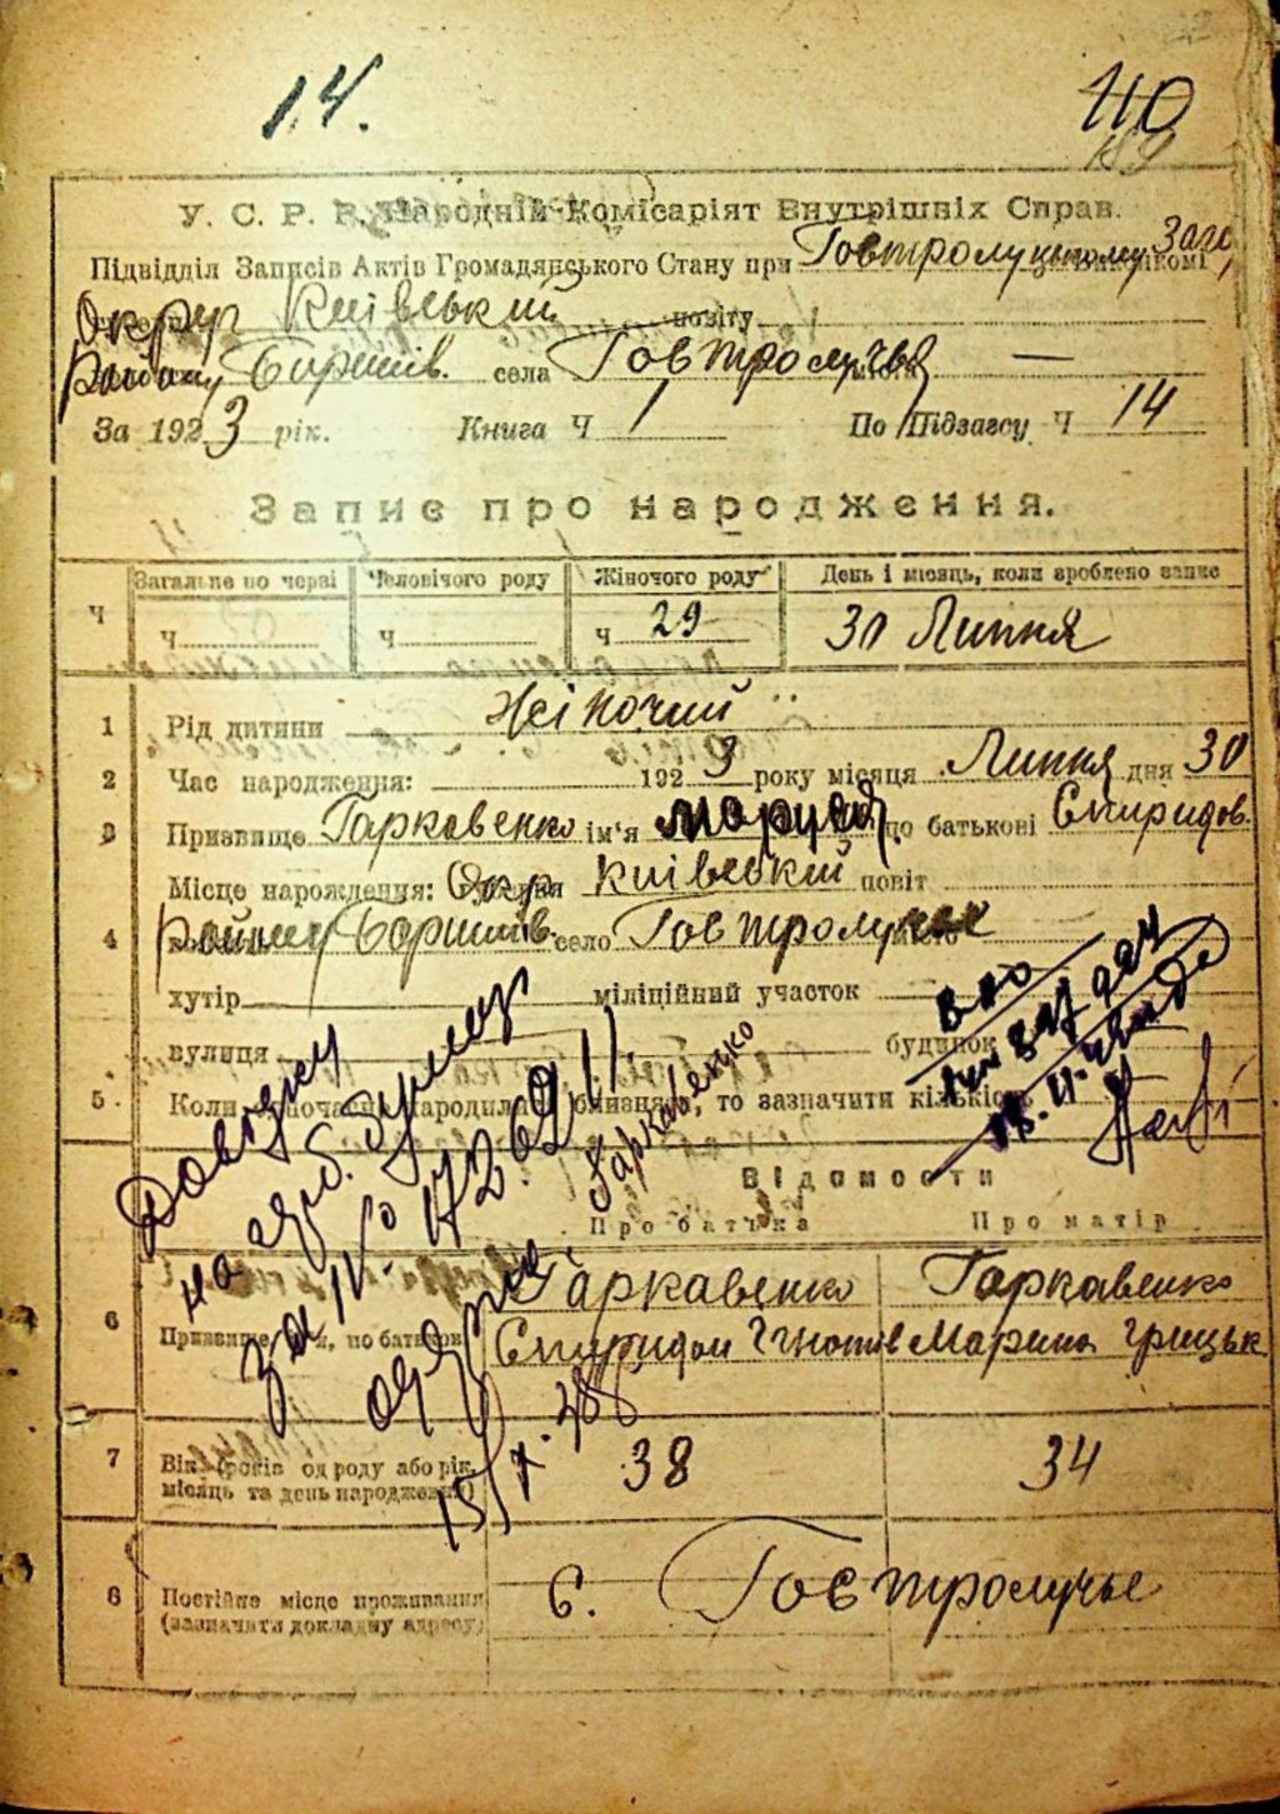 14.
110
189
У. С. Р. Р. Народній Комісаріят Внутрішніх Справ.
Підвідділ Записів Актів Громадянського Стану при Говтролуцькому Загс
Округ Київський повіту
Району Боришів. села Говтролуччя —
За 1923 рік. Книга Ч 1 По Підзагсу Ч 14
Запис про народження.
Загальне по черві Чоловічого роду Жіночого роду День і місяць, коли зроблено запис
Ч Ч Ч Ч 29 30 Липня
1 Рід дитини Жіночий
2 Час народження: 1923 року місяця Липня дня 30
3 Призвище Гаркавенко ім'я Маруся по батькові Спиридов.
Місце нарождення: Окр Київський повіт
4 Району Боришів. село Говтролуч місто
хутір міліційний участок
вулиця будинок
5. Коли одночасно народилися близнята, то зазначити кількість
Гаркавенко
18.11.
Довідку
на
за № 172691
15/X.
Відомости
Про батька Про матір
6 Призвище, ім'я, по батькові Гаркавенко Гаркавенко
Спиридон Гнатів Марина Грицьк
7 Вік (років од роду або рік, 38 34
місяць та день народження)
8 Постійне місце проживання С. Говтролучье
(зазначити докладну адресу)